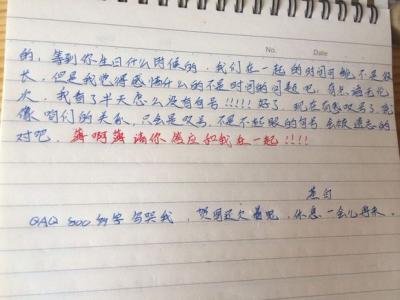 No. Date
的，等到你生日什么时候的，我们在一起的时间可能不是很
长，但是我觉得感情什么的不是时间的问题吧，有点语无伦
次，我看了半天怎么没有句号!!!!!好了，现在有感叹号了，就
像咱们的关系，只会是叹号，不是不起眼的句号 会被遗忘的
对吧，蒋啊蒋 请你答应和我在一起!!!!
QAQ 800多字写哭我，
休息一会儿再来。